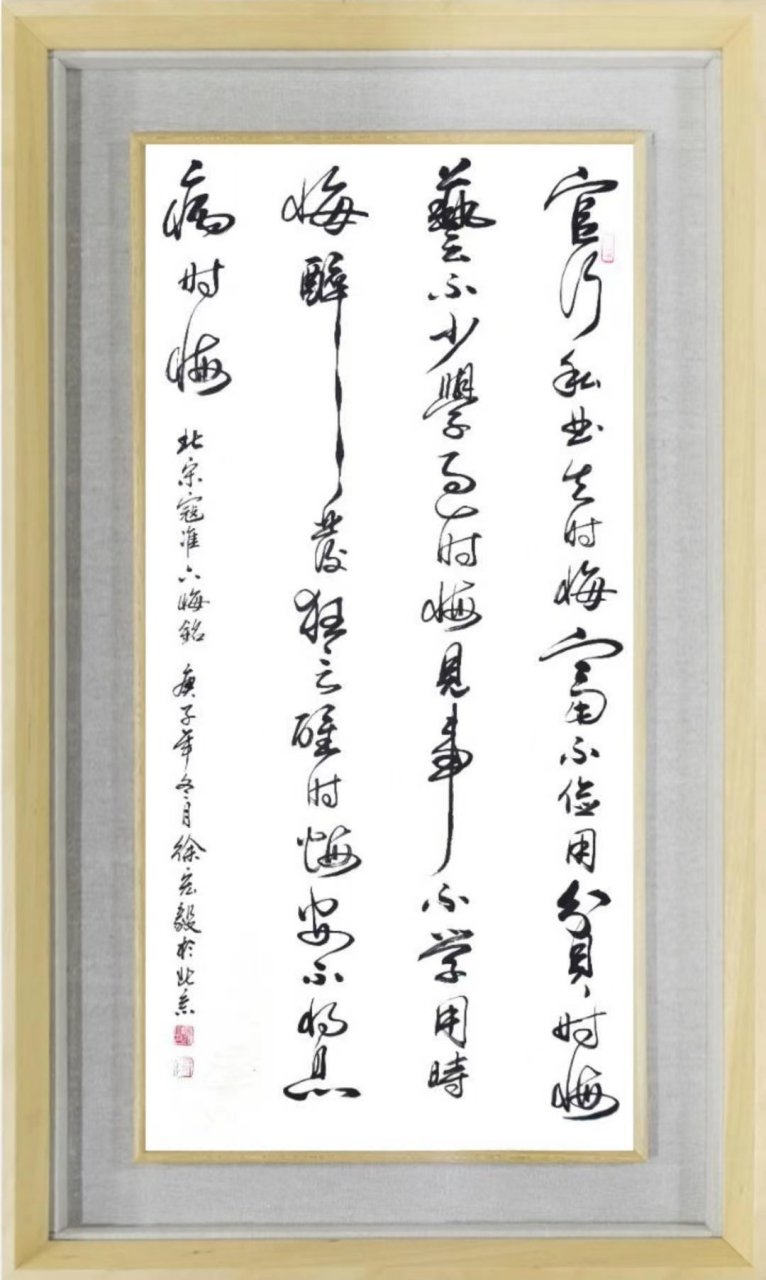 官行私曲失时悔富不俭用贫时悔
藝不少學过时悔見事不学用時
悔醉發狂言醒时悔安不将息
病时悔
北宋寇准六悔銘 庚子年冬月徐宏毅於北京